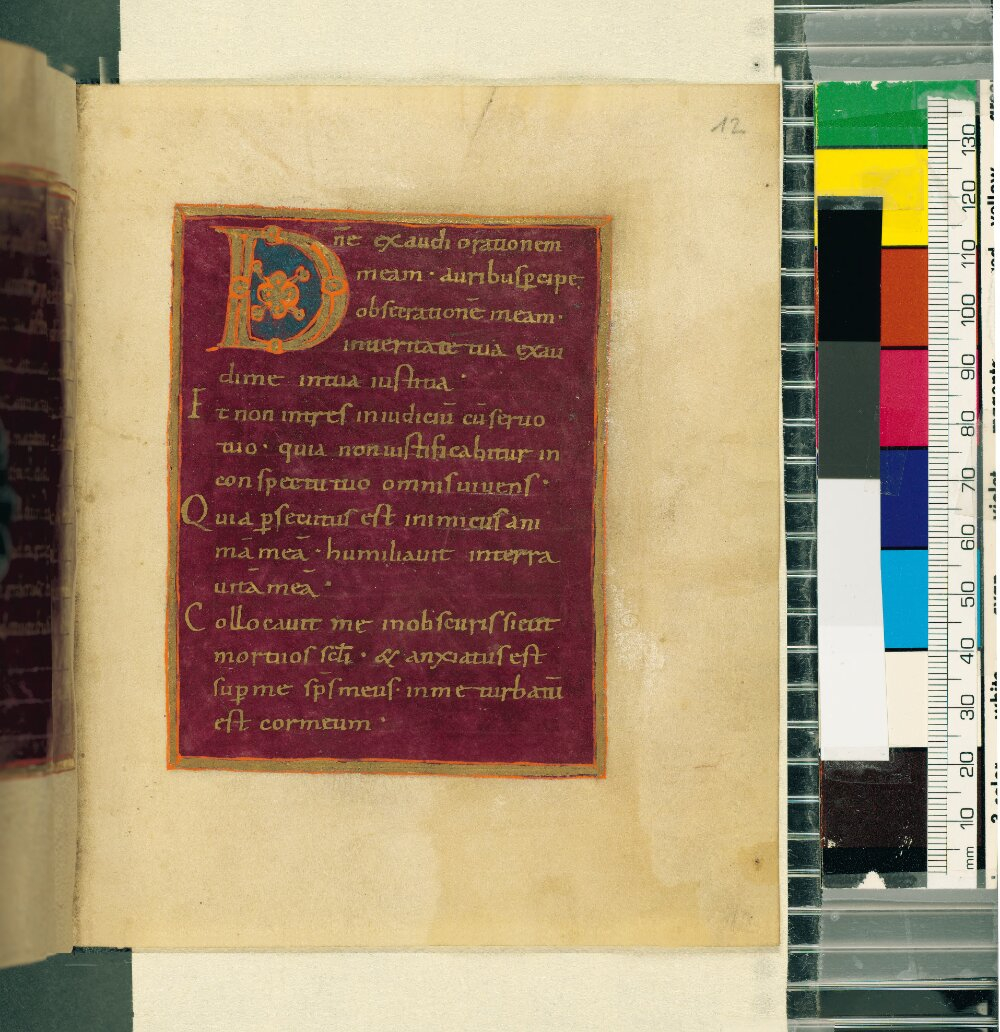 12
Dn̄e exaudi orationem
meam · auribus ꝑcipe
obsecrationē meam ·
in ueritate tua exau
di me in tua iustitia ·
Et non intres in iudiciū cū seruo
tuo · quia non iustificabitur in
conspectu tuo omnis uiuens ·
Quia ꝑsecutus est inimicus ani
mā meā · humiliauit in terra
uitā meā ·
Collocauit me in obscuris sicut
mortuos scl̄i · & anxiatus est
suꝑ me sp̄s meus · in me turbatū
est cor meum ·
130
120
110
100
90
80
70
60
50
40
30
20
10
mm
yellow
magenta
violet
cyan
white
3-color